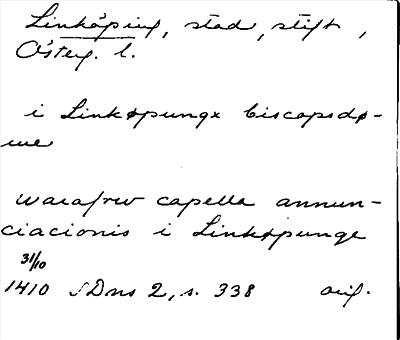 Linköping, stad, stift,
Österg. l.
i Linkøpungx biscopsdø-
me
warafrw capella annun-
ciacionis i Linkøpunge
31/10
1410 SDns 2, s. 338 orig.